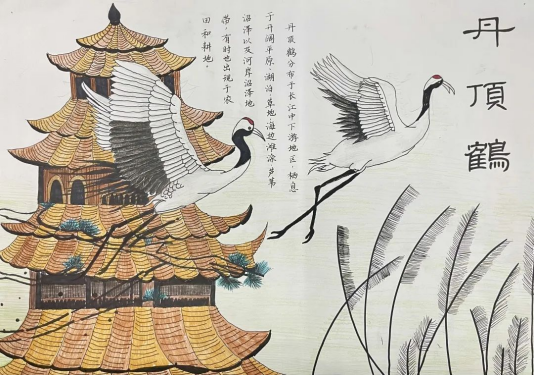 丹頂鶴
丹顶鹤分布于长江中下游地区,栖息
于开阔平原、湖泊、草地、海边滩涂、芦苇
沼泽以及河岸沼泽地
带,有时也出现于农
田和耕地。